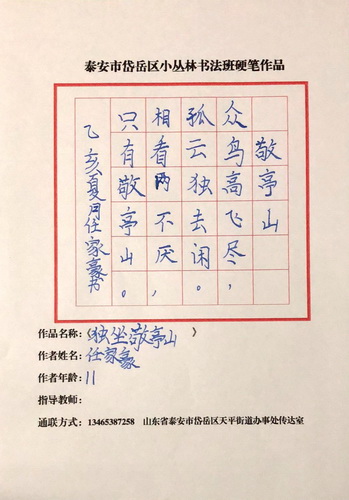 泰安市岱岳区小丛林书法班硬笔作品
敬亭山
众鸟高飞尽，
孤云独去闲。
相看两不厌，
只有敬亭山。
乙亥夏月任家豪书
作品名称：《独坐敬亭山》
作者姓名：任家豪
作者年龄：11
指导教师：
通联方式：13465387258 山东省泰安市岱岳区天平街道办事处传达室